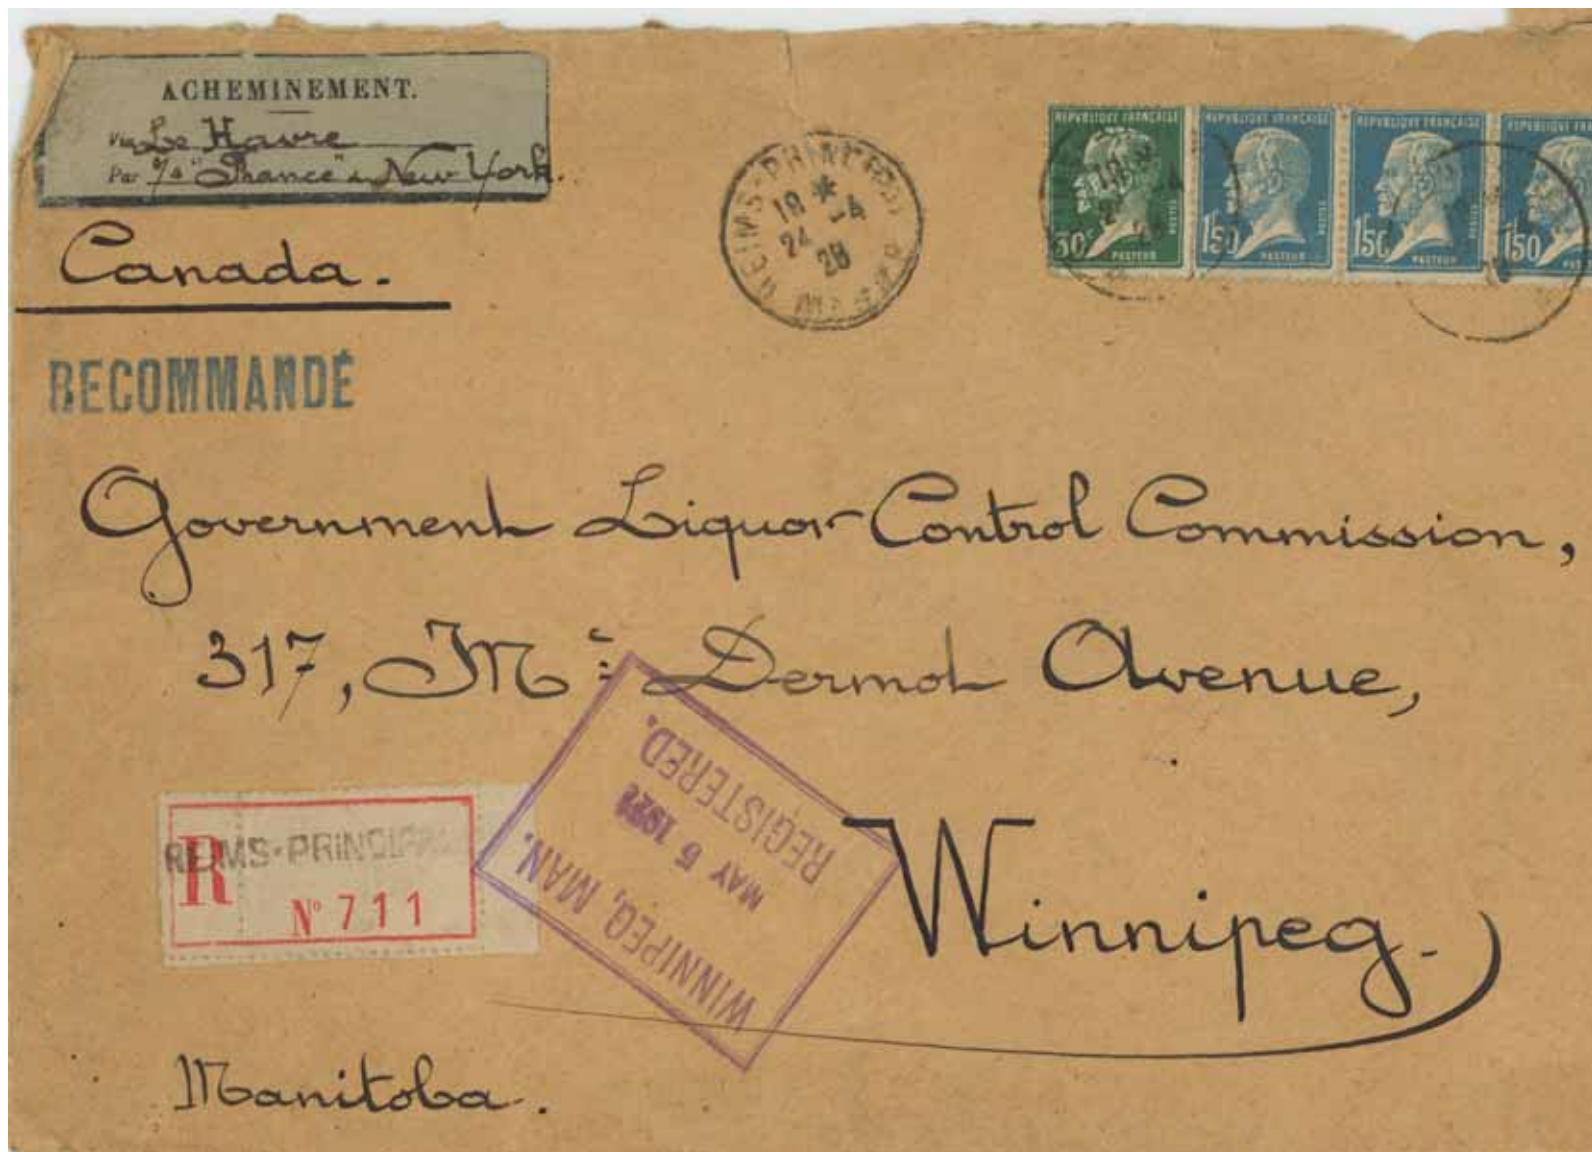 ACHEMINEMENT.
Via Le Havre
Par s/s "France" à New York.
Canada.
RECOMMANDÉ
REIMS-PRINCIPAL
18 * -4
24
28
MARNE
REPUBLIQUE FRANÇAISE
30c
POSTES
PASTEUR
REPUBLIQUE FRANÇAISE
1F50
POSTES
PASTEUR
REPUBLIQUE FRANÇAISE
1F50
POSTES
PASTEUR
REPUBLIQUE FRANÇAISE
1F50
PASTEUR
Government Liquor Control Commission,
317, Mc Dermot Avenue,
Winnipeg.
Manitoba.
R
REIMS-PRINCIPAL
N° 711
WINNIPEG, MAN.
MAY 5 1928
REGISTERED.